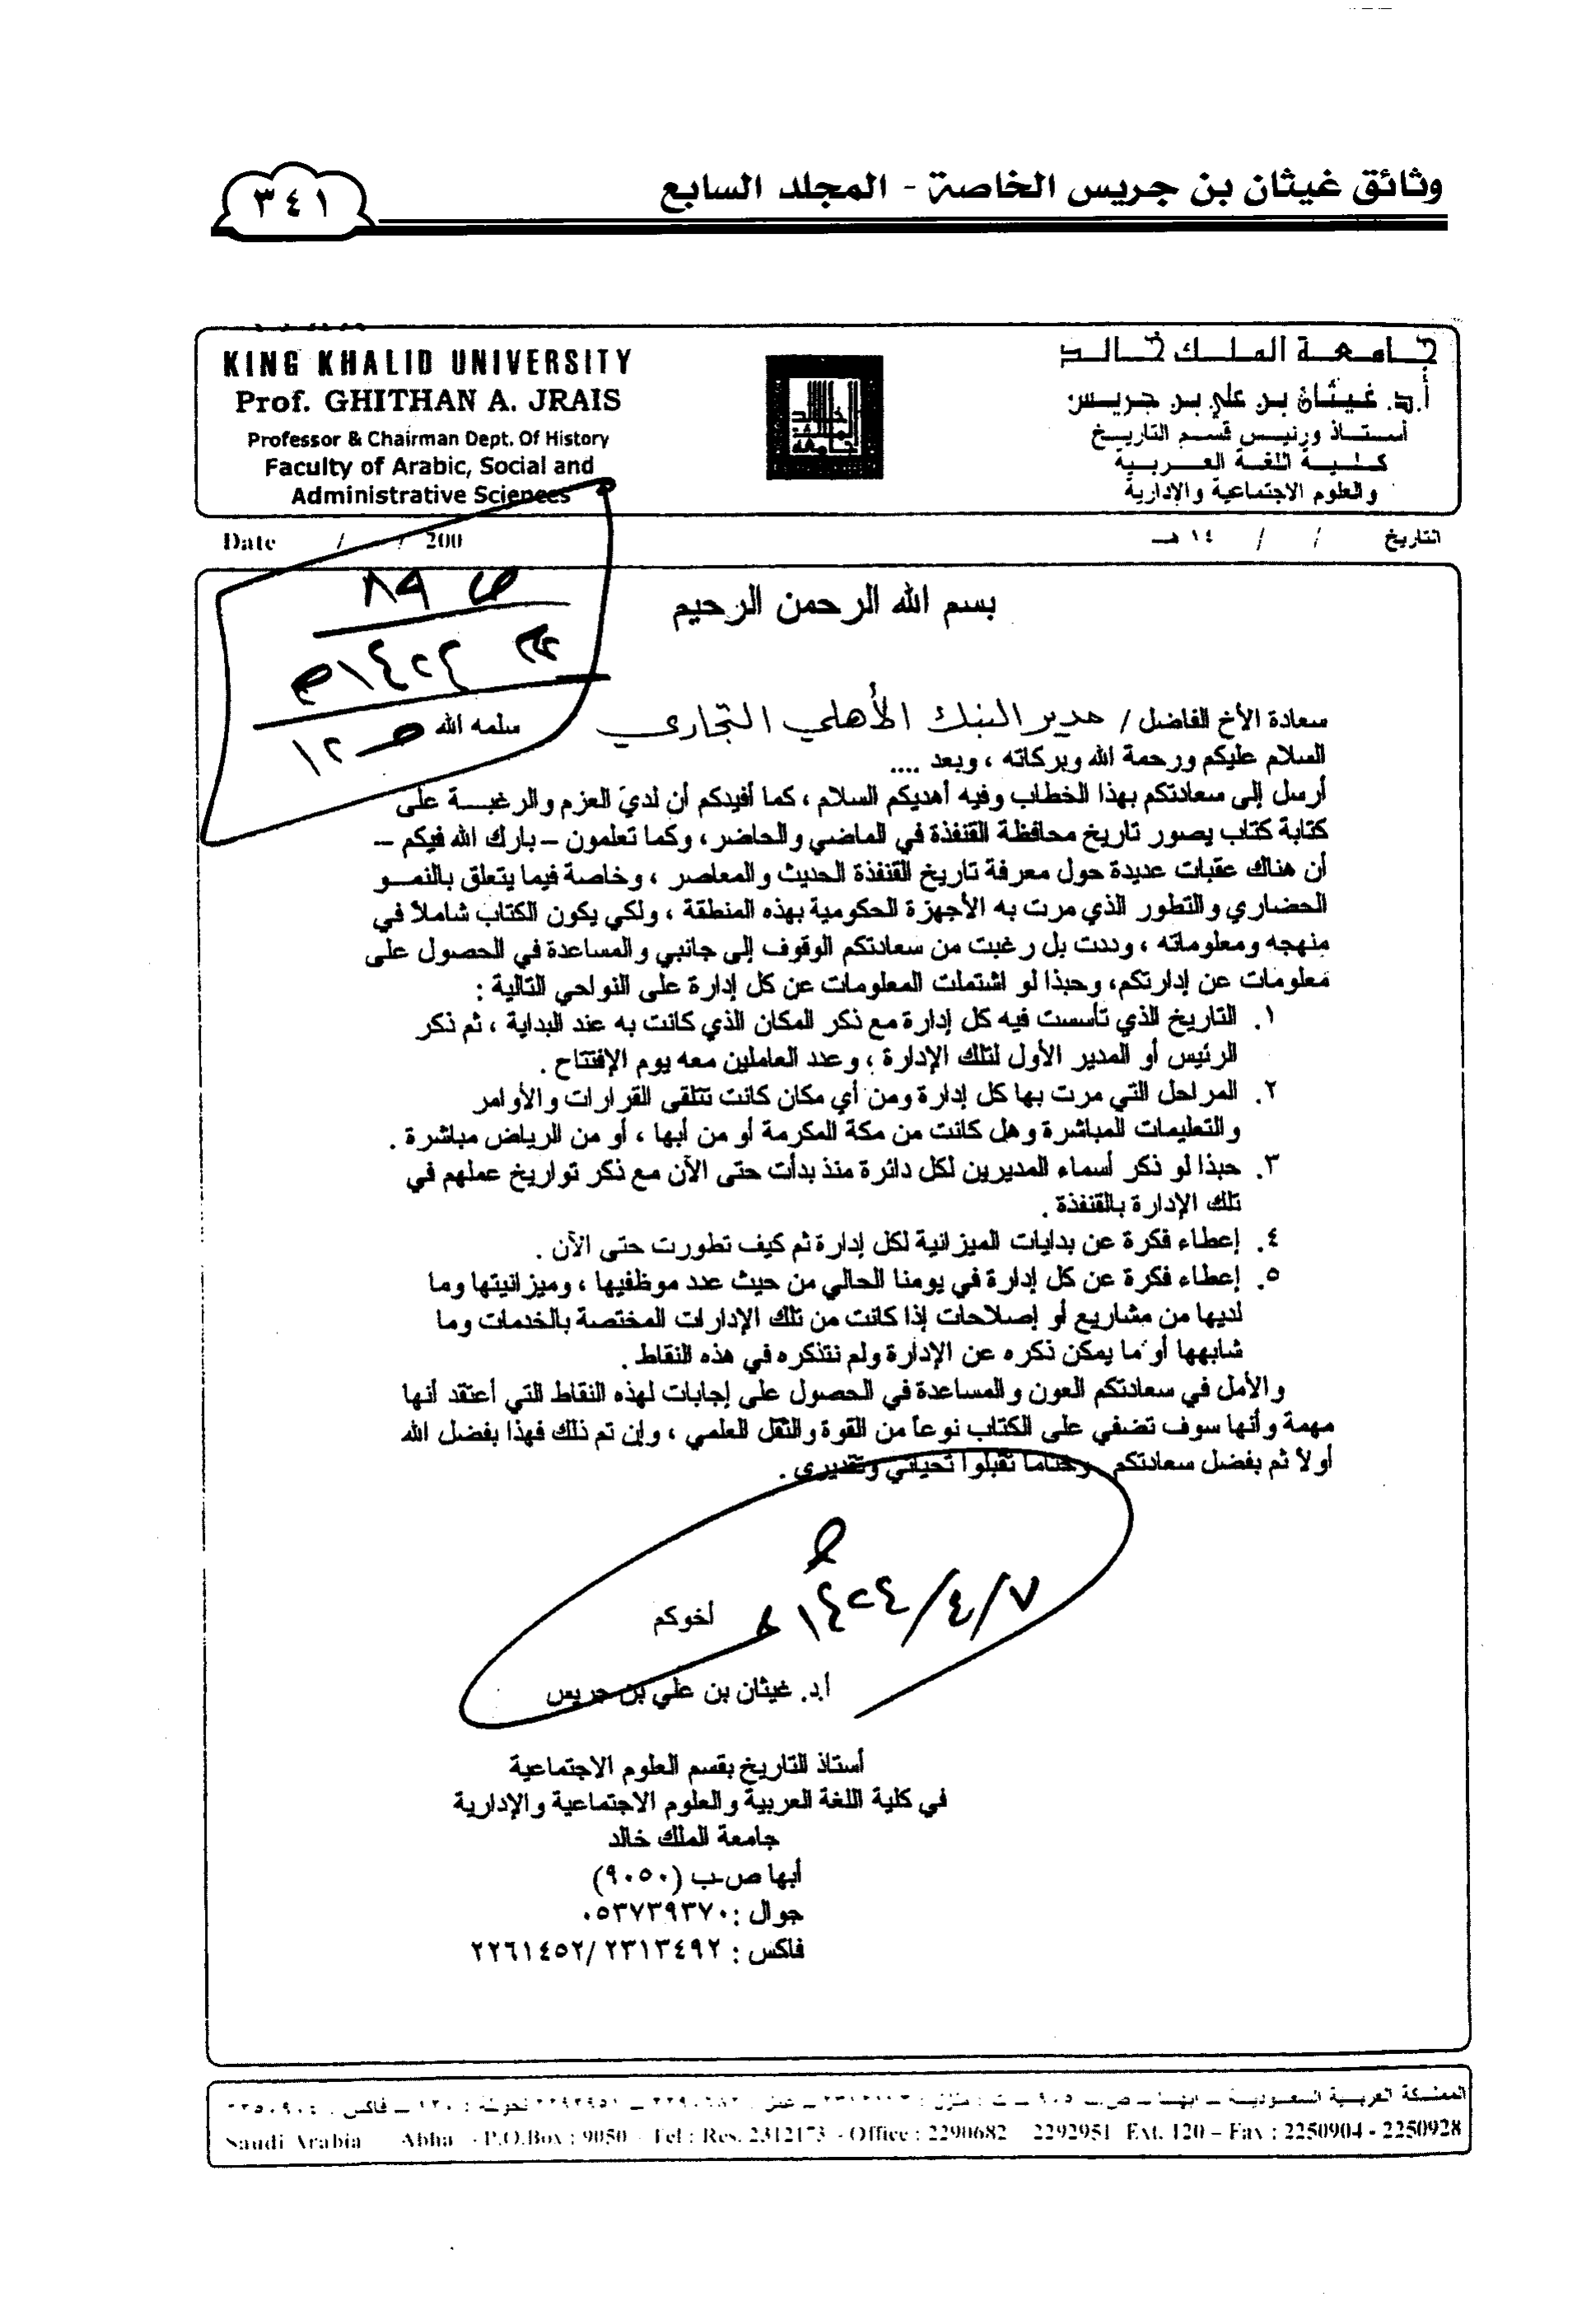 وثائق غيثان بن جريس الخاصة - المجلد السابع
٣٤١
جامعة الملك خالد
أ.د. غيثان بن علي بن جريس
أستاذ ورئيس قسم التاريخ
كلية اللغة العربية
والعلوم الاجتماعية والإدارية
KING KHALID UNIVERSITY
Prof. GHITHAN A. JRAIS
Professor & Chairman Dept. Of History
Faculty of Arabic, Social and
Administrative Sciences
التاريخ / / ١٤ هـ
Date / / 200
بسم الله الرحمن الرحيم
سعادة الأخ الفاضل / مدير البنك الأهلي التجاري سلمه الله
السلام عليكم ورحمة الله وبركاته ، وبعد ....
أرسل إلى سعادتكم بهذا الخطاب وفيه أهديكم السلام ، كما أفيدكم أن لديّ العزم والرغبة على
كتابة كتاب يصور تاريخ محافظة القنفذة في الماضي والحاضر، وكما تعلمون – بارك الله فيكم –
أن هناك عقبات عديدة حول معرفة تاريخ القنفذة الحديث والمعاصر ، وخاصة فيما يتعلق بالنمو
الحضاري والتطور الذي مرت به الأجهزة الحكومية بهذه المنطقة ، ولكي يكون الكتاب شاملاً في
منهجه ومعلوماته ، وددت بل رغبت من سعادتكم الوقوف إلى جانبي والمساعدة في الحصول على
معلومات عن إدارتكم، وحبذا لو اشتملت المعلومات عن كل إدارة على النواحي التالية :
١. التاريخ الذي تأسست فيه كل إدارة مع ذكر المكان الذي كانت به عند البداية ، ثم ذكر
الرئيس أو المدير الأول لتلك الإدارة ، وعدد العاملين معه يوم الإفتتاح .
٢. المراحل التي مرت بها كل إدارة ومن أي مكان كانت تتلقى القرارات والأوامر
والتعليمات المباشرة وهل كانت من مكة المكرمة أو من أبها ، أو من الرياض مباشرة .
٣. حبذا لو ذكر أسماء المديرين لكل دائرة منذ بدأت حتى الآن مع ذكر تواريخ عملهم في
تلك الإدارة بالقنفذة .
٤. إعطاء فكرة عن بدايات الميزانية لكل إدارة ثم كيف تطورت حتى الآن .
٥. إعطاء فكرة عن كل إدارة في يومنا الحالي من حيث عدد موظفيها ، وميزانيتها وما
لديها من مشاريع أو إصلاحات إذا كانت من تلك الإدارات المختصة بالخدمات وما
شابهها أو ما يمكن ذكره عن الإدارة ولم نتذكره في هذه النقاط .
والأمل في سعادتكم العون والمساعدة في الحصول على إجابات لهذه النقاط التي أعتقد أنها
مهمة وأنها سوف تضفي على الكتاب نوعاً من القوة والثقل العلمي ، وإن تم ذلك فهذا بفضل الله
أولاً ثم بفضل سعادتكم وختاما تقبلوا تحياتي وتقديري .
١٤٢٤/٤/٧
أخوكم
أ.د. غيثان بن علي بن جريس
أستاذ التاريخ بقسم العلوم الاجتماعية
في كلية اللغة العربية والعلوم الاجتماعية والإدارية
جامعة الملك خالد
أبها ص-ب (٩٠٥٠)
جوال :٠٥٣٧٣٩٣٧٠
فاكس : ٢٢٦١٤٥٢/٢٣١٣٤٩٢
المملكة العربية السعودية – ابها –
Saudi Arabia Abha - P.O.Box : 9050 - Tel : Res. 2312173 - Office : 2290682 2292951 Ext. 120 – Fax : 2250904 - 2250928